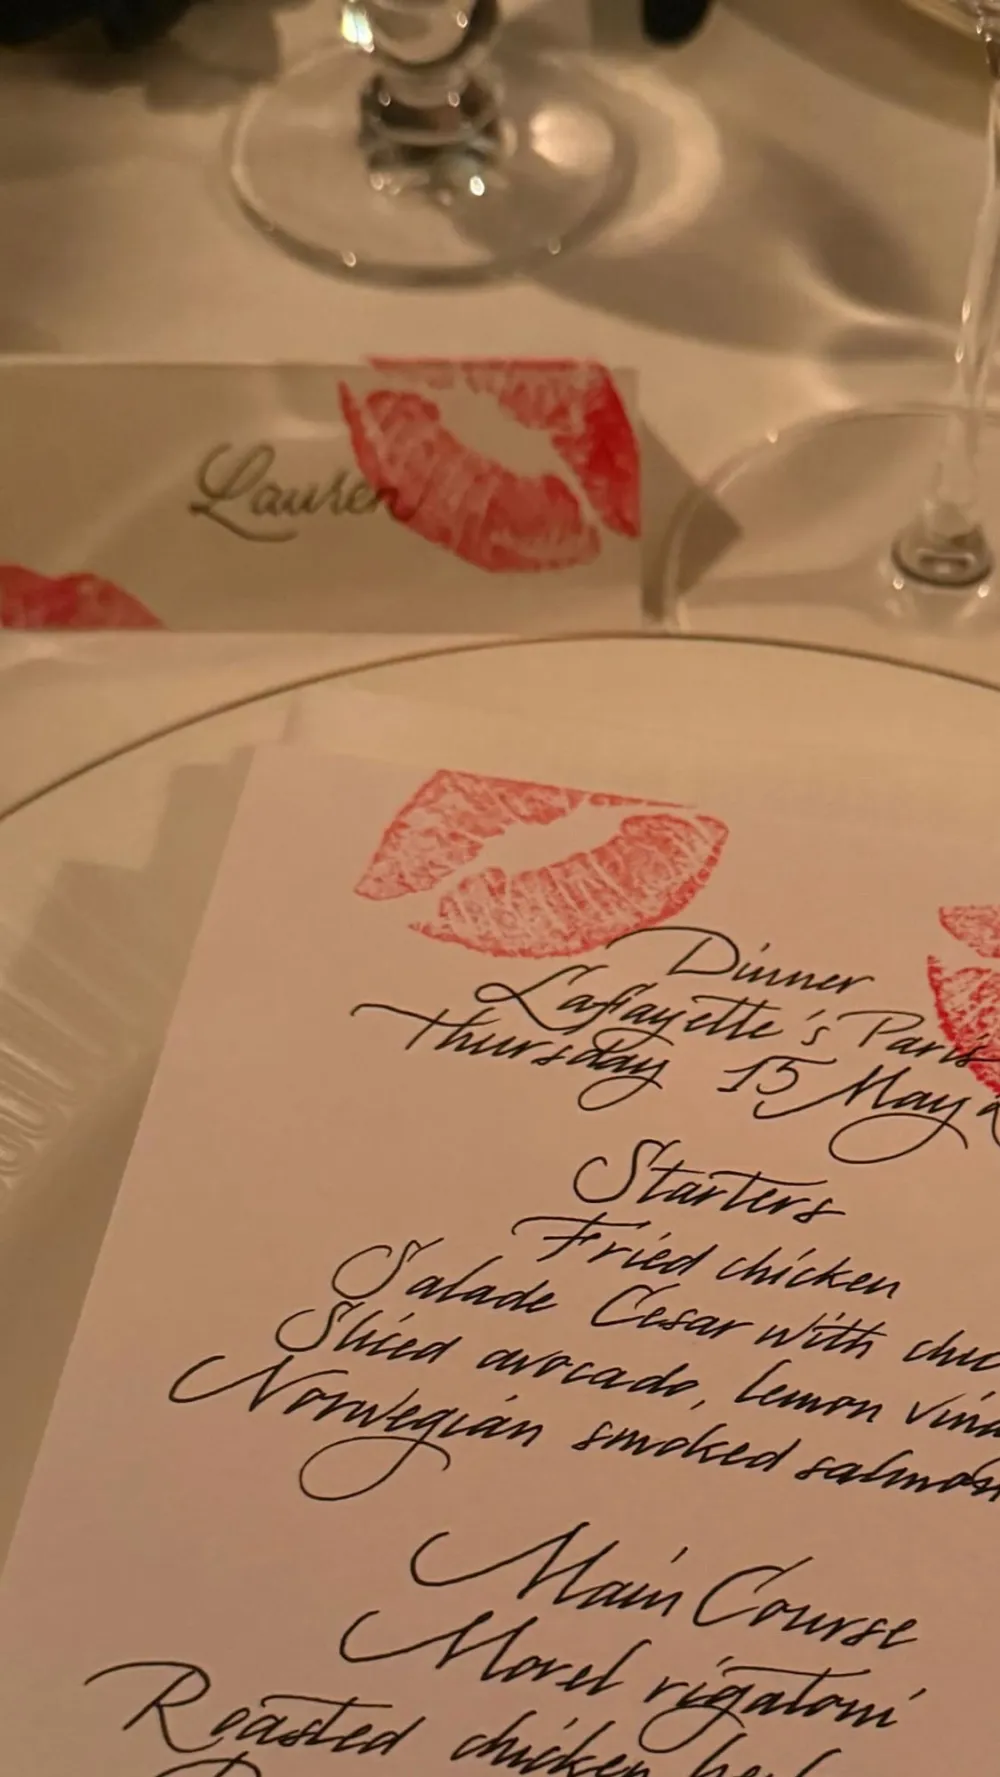 Lauren
Dinner
Laffayette's Paris
Thursday 15 May
Starters
Fried chicken
Salade Cesar with
Sliced avocado, lemon
Norwegian smoked salmon
Main Course
Morel rigatoni
Roasted chicken